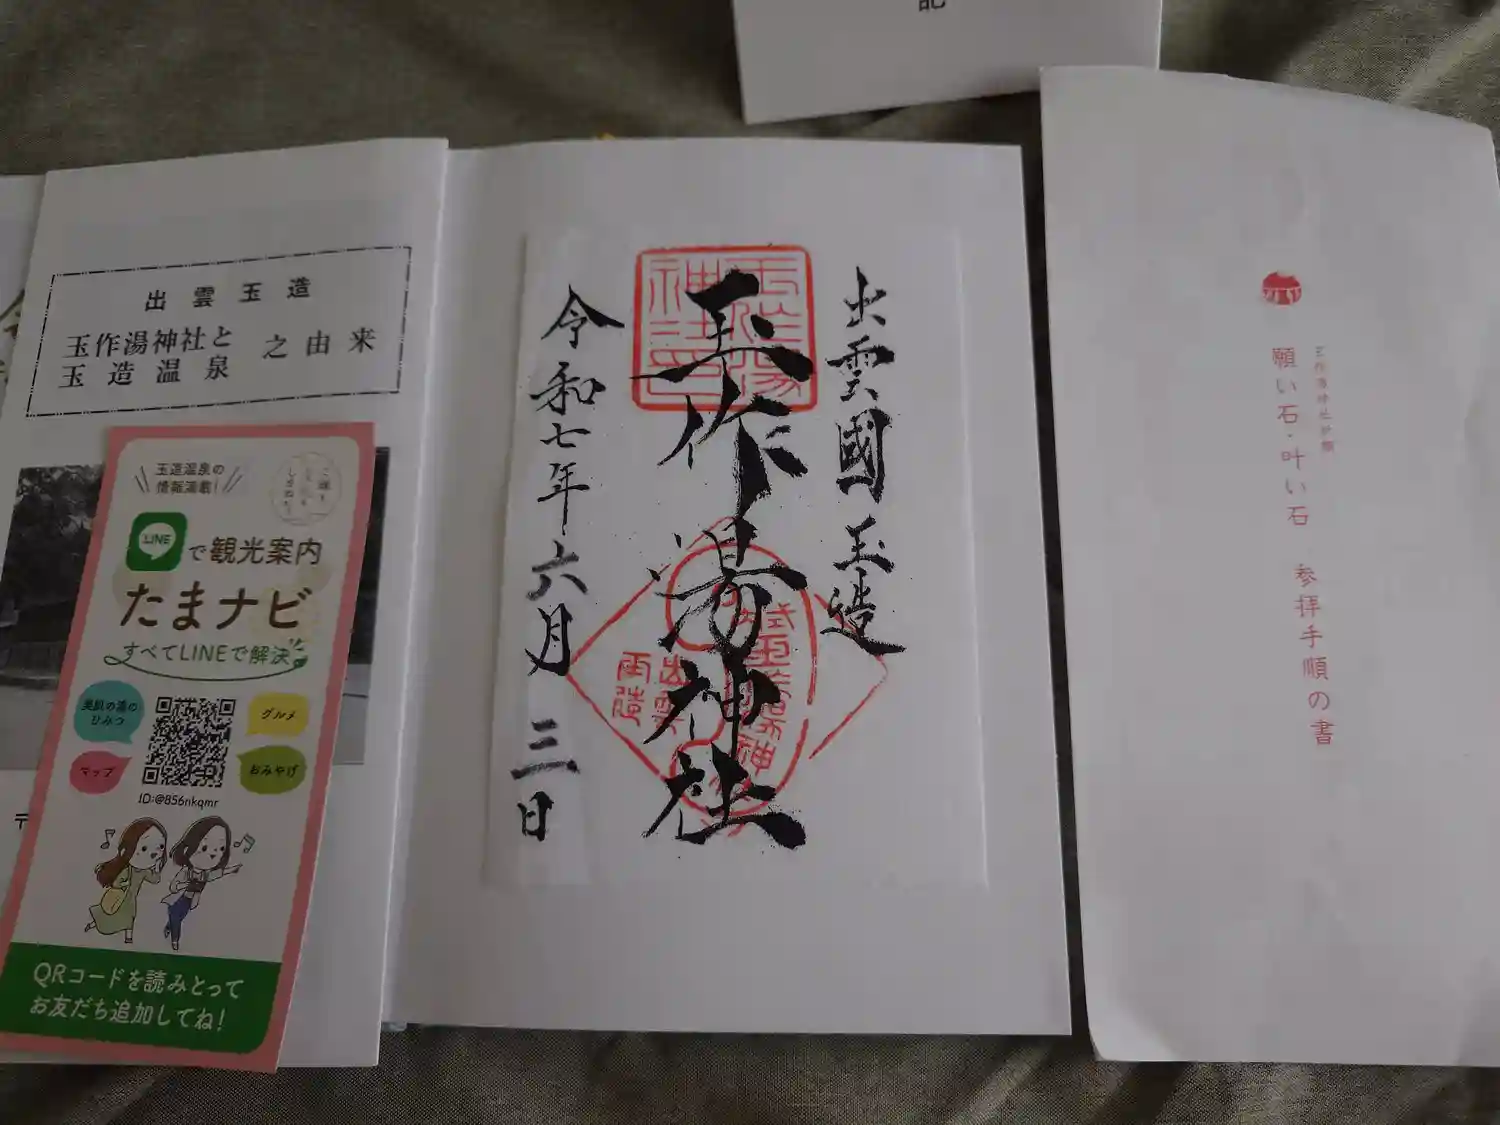 記
出雲玉造
玉作湯神社と
玉造温泉
之由来
玉造温泉の
情報満載!
LINE
で観光案内
たまナビ
すべてLINEで解決
美肌の湯の
ひみつ
グルメ
マップ
おみやげ
ID:@856nkqmr
QRコードを読みとって
お友だち追加してね!
〒
出雲國 玉造
玉作湯神社
令和七年六月三日
玉作湯神社印
出雲
玉造
願い石・叶い石 参拝手順の書